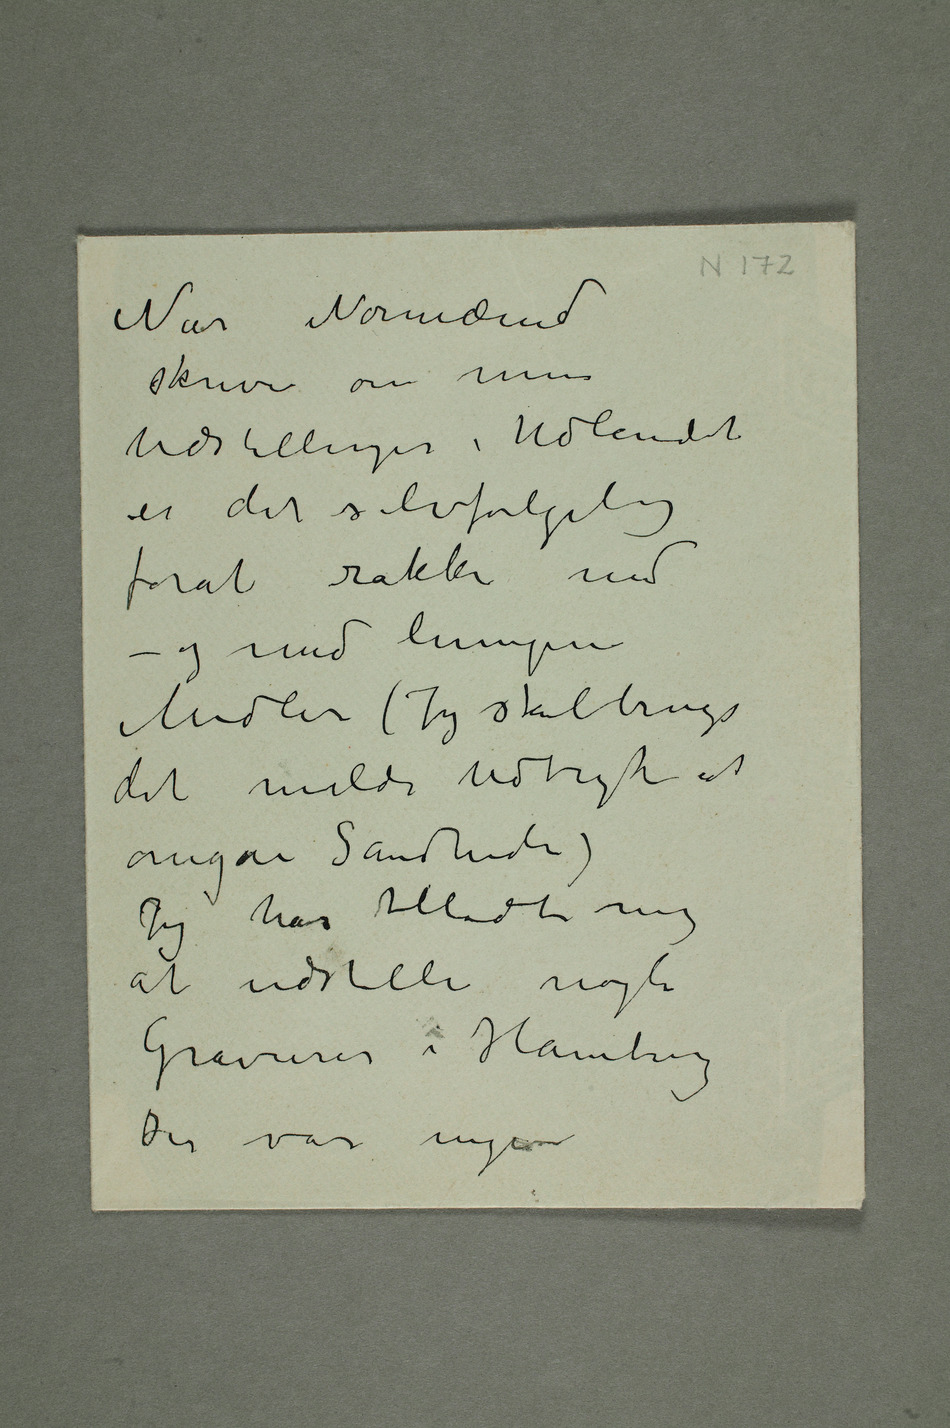 N 172
Når Normænd
skriver om mine
Udstillinger i Udlandet
er det selvfølgelig
forat rakke ned
– og med
Midler (Jeg skal bruge
det milde Udtryk at
omgåe Sandheden)
Jeg har tilladt mig
at udstille nogle
Gravurer i Hamburg
Der var ingen